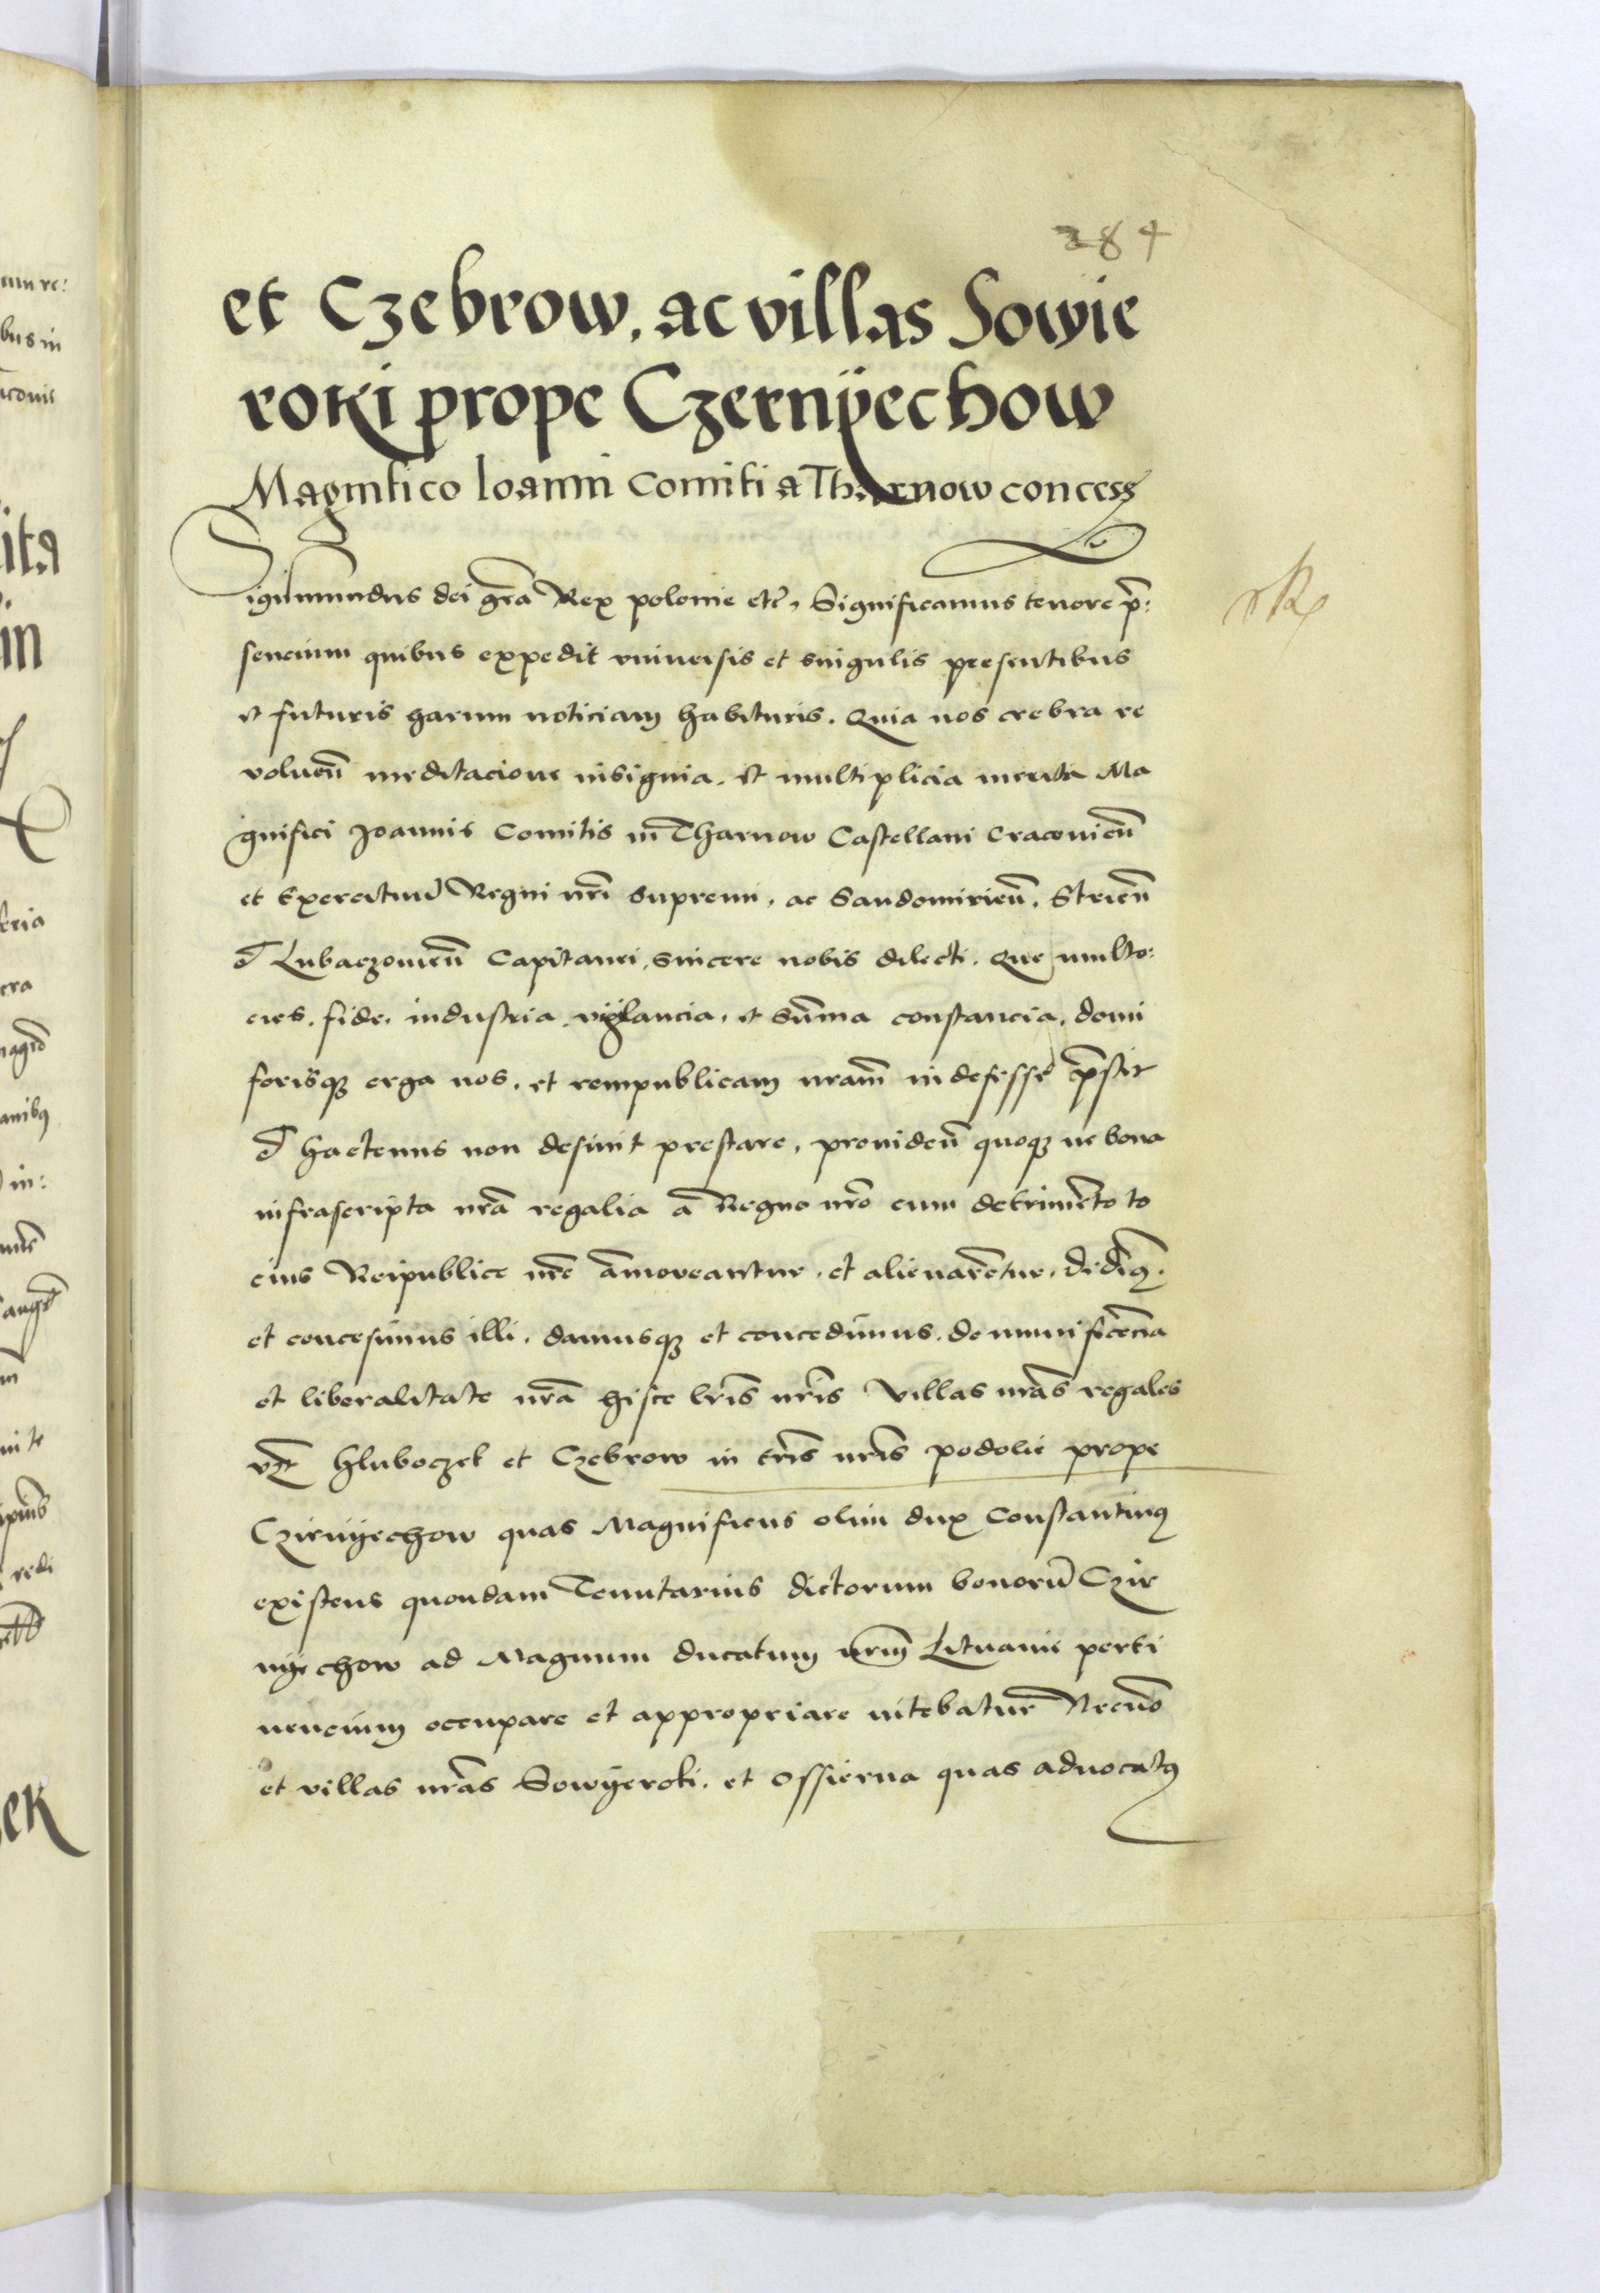 384
et Czebrow, ac villas Sowie
roki prope Czernÿechow
Magnifico Ioanni Comiti a Tharnow concess
Sigismundus dei grā Rex polonie etc, Significamus tenore p̄:
sencium quibus expedit vniuersis et singulis presentibus
et futuris harum noticiam habituris. Quia nos crebra re
voluen̄ meditacione insignia, et multiplicia merita Ma
gnifici Joannis Comitis in Tharnow Castellani Cracouien̄
et Exercituū Regni nr̄i supremi, ac Sandomirien̄, Strien̄
et Lubaczouien̄ Capitanei, sincere nobis dilecti. Que multo:
cies, fide, industria, vigilancia, et sūma constancia, domi
forisq erga nos, et rempublicam nram̄ indefesse p̄stit
et hactenus non desinit prestare, prouiden̄ quoq ne bona
infrascripta nrā regalia a Regno nrō cum detrimēto to
cius Reipublice nrē amoveantur, et alienarētur, dedimꝰ,
et concessimus illi, damusq et concedimus, de munificēcia
et liberalitate nrā hisce lrīs nrīs villas nrās regales
vz Hluboczek et Czebrow in trīs nrīs podolie prope
Czirnÿechow quas Magnificus olim dux Constantinꝰ
existens quondam Tenutarius dictorum bonorū Czir
nÿechow ad Magnum ducatum nrm̄ Lituanie perti
nencium occupare et appropriare nitebatur Necnō
et villas nrās Sowÿeroki, et Ossierna quas aduocatꝰ